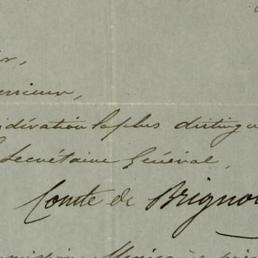 ur,
nsieur,
idération la plus distingu
Secrétaire Général,
Comte de Brigno